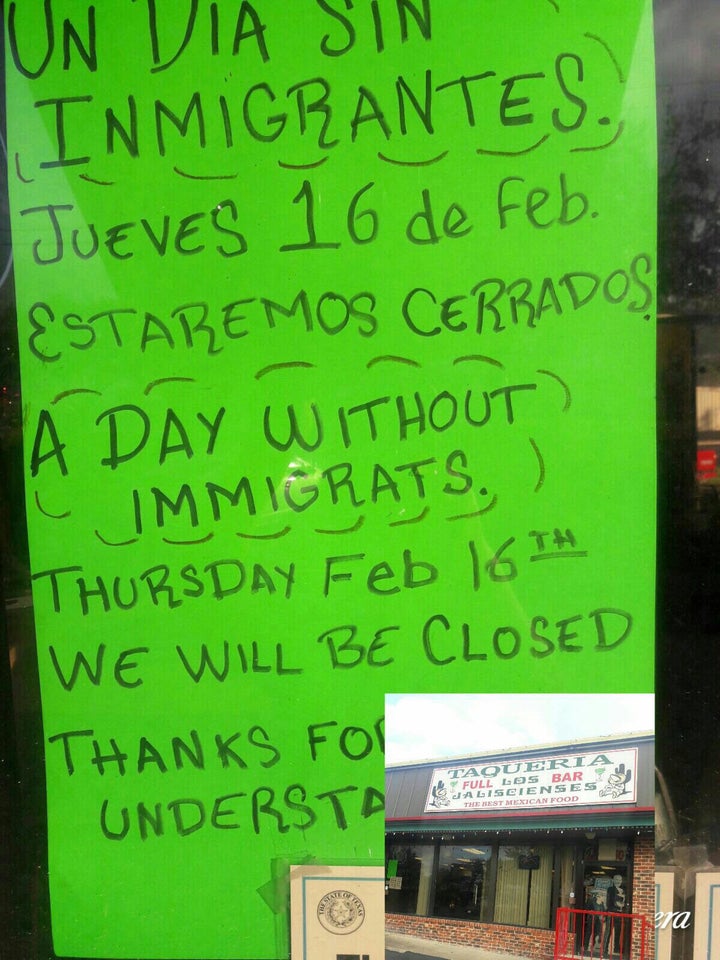 UN DIA SIN
INMIGRANTES.
JUEVES 16 de Feb.
ESTAREMOS CERRADOS.
A DAY WITHOUT
IMMIGRATS.
THURSDAY Feb 16TH
WE WILL BE CLOSED
THANKS FO
UNDERSTA
THE STATE OF TEXAS
TAQUERIA
FULL LOS BAR
JALISCIENSES
THE BEST MEXICAN FOOD
era